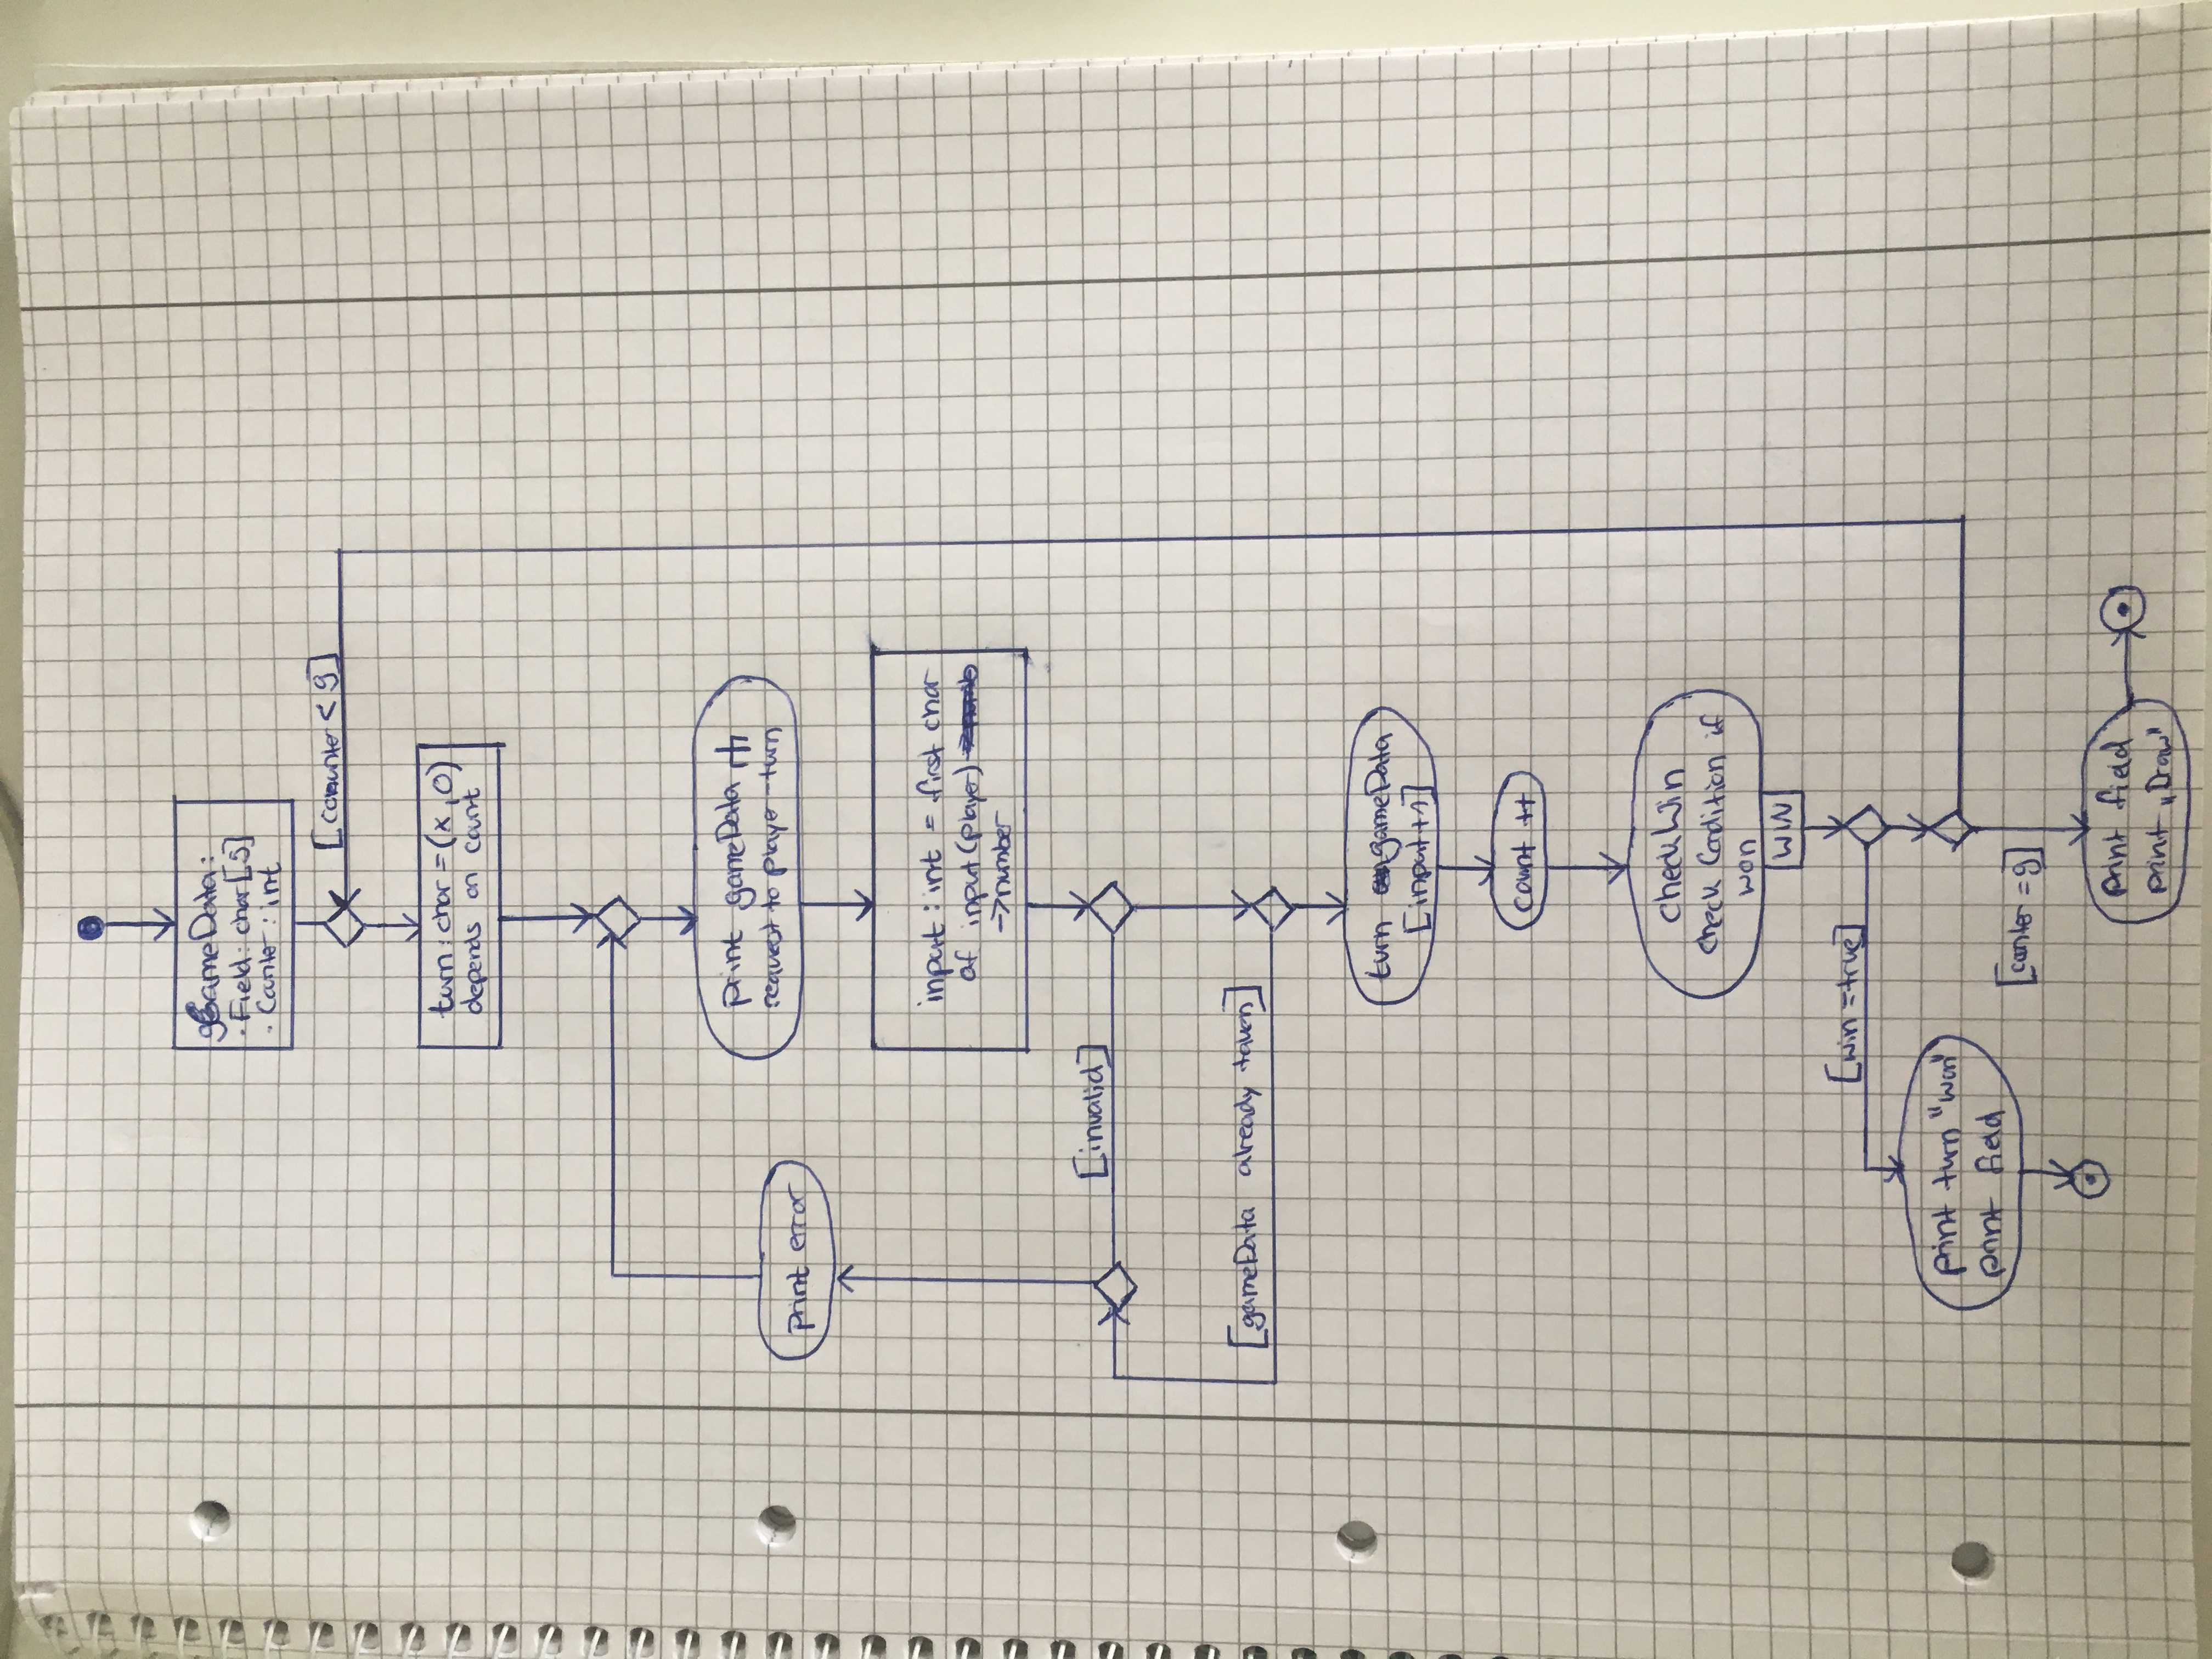 gGameData:
· Field: char[9]
· Counter: int
[counter < 9]
turn: char = (x, O)
depends on count
print gameData
request to player-turn
print error
input: int = first char
of input (player)
->number
[invalid]
[gameData already taken]
turn gameData
[input+1]
count ++
checkWin
check Condition if
won
WIN
[win=true]
print turn "won"
print field
[counter = 9]
print field
print „Draw"